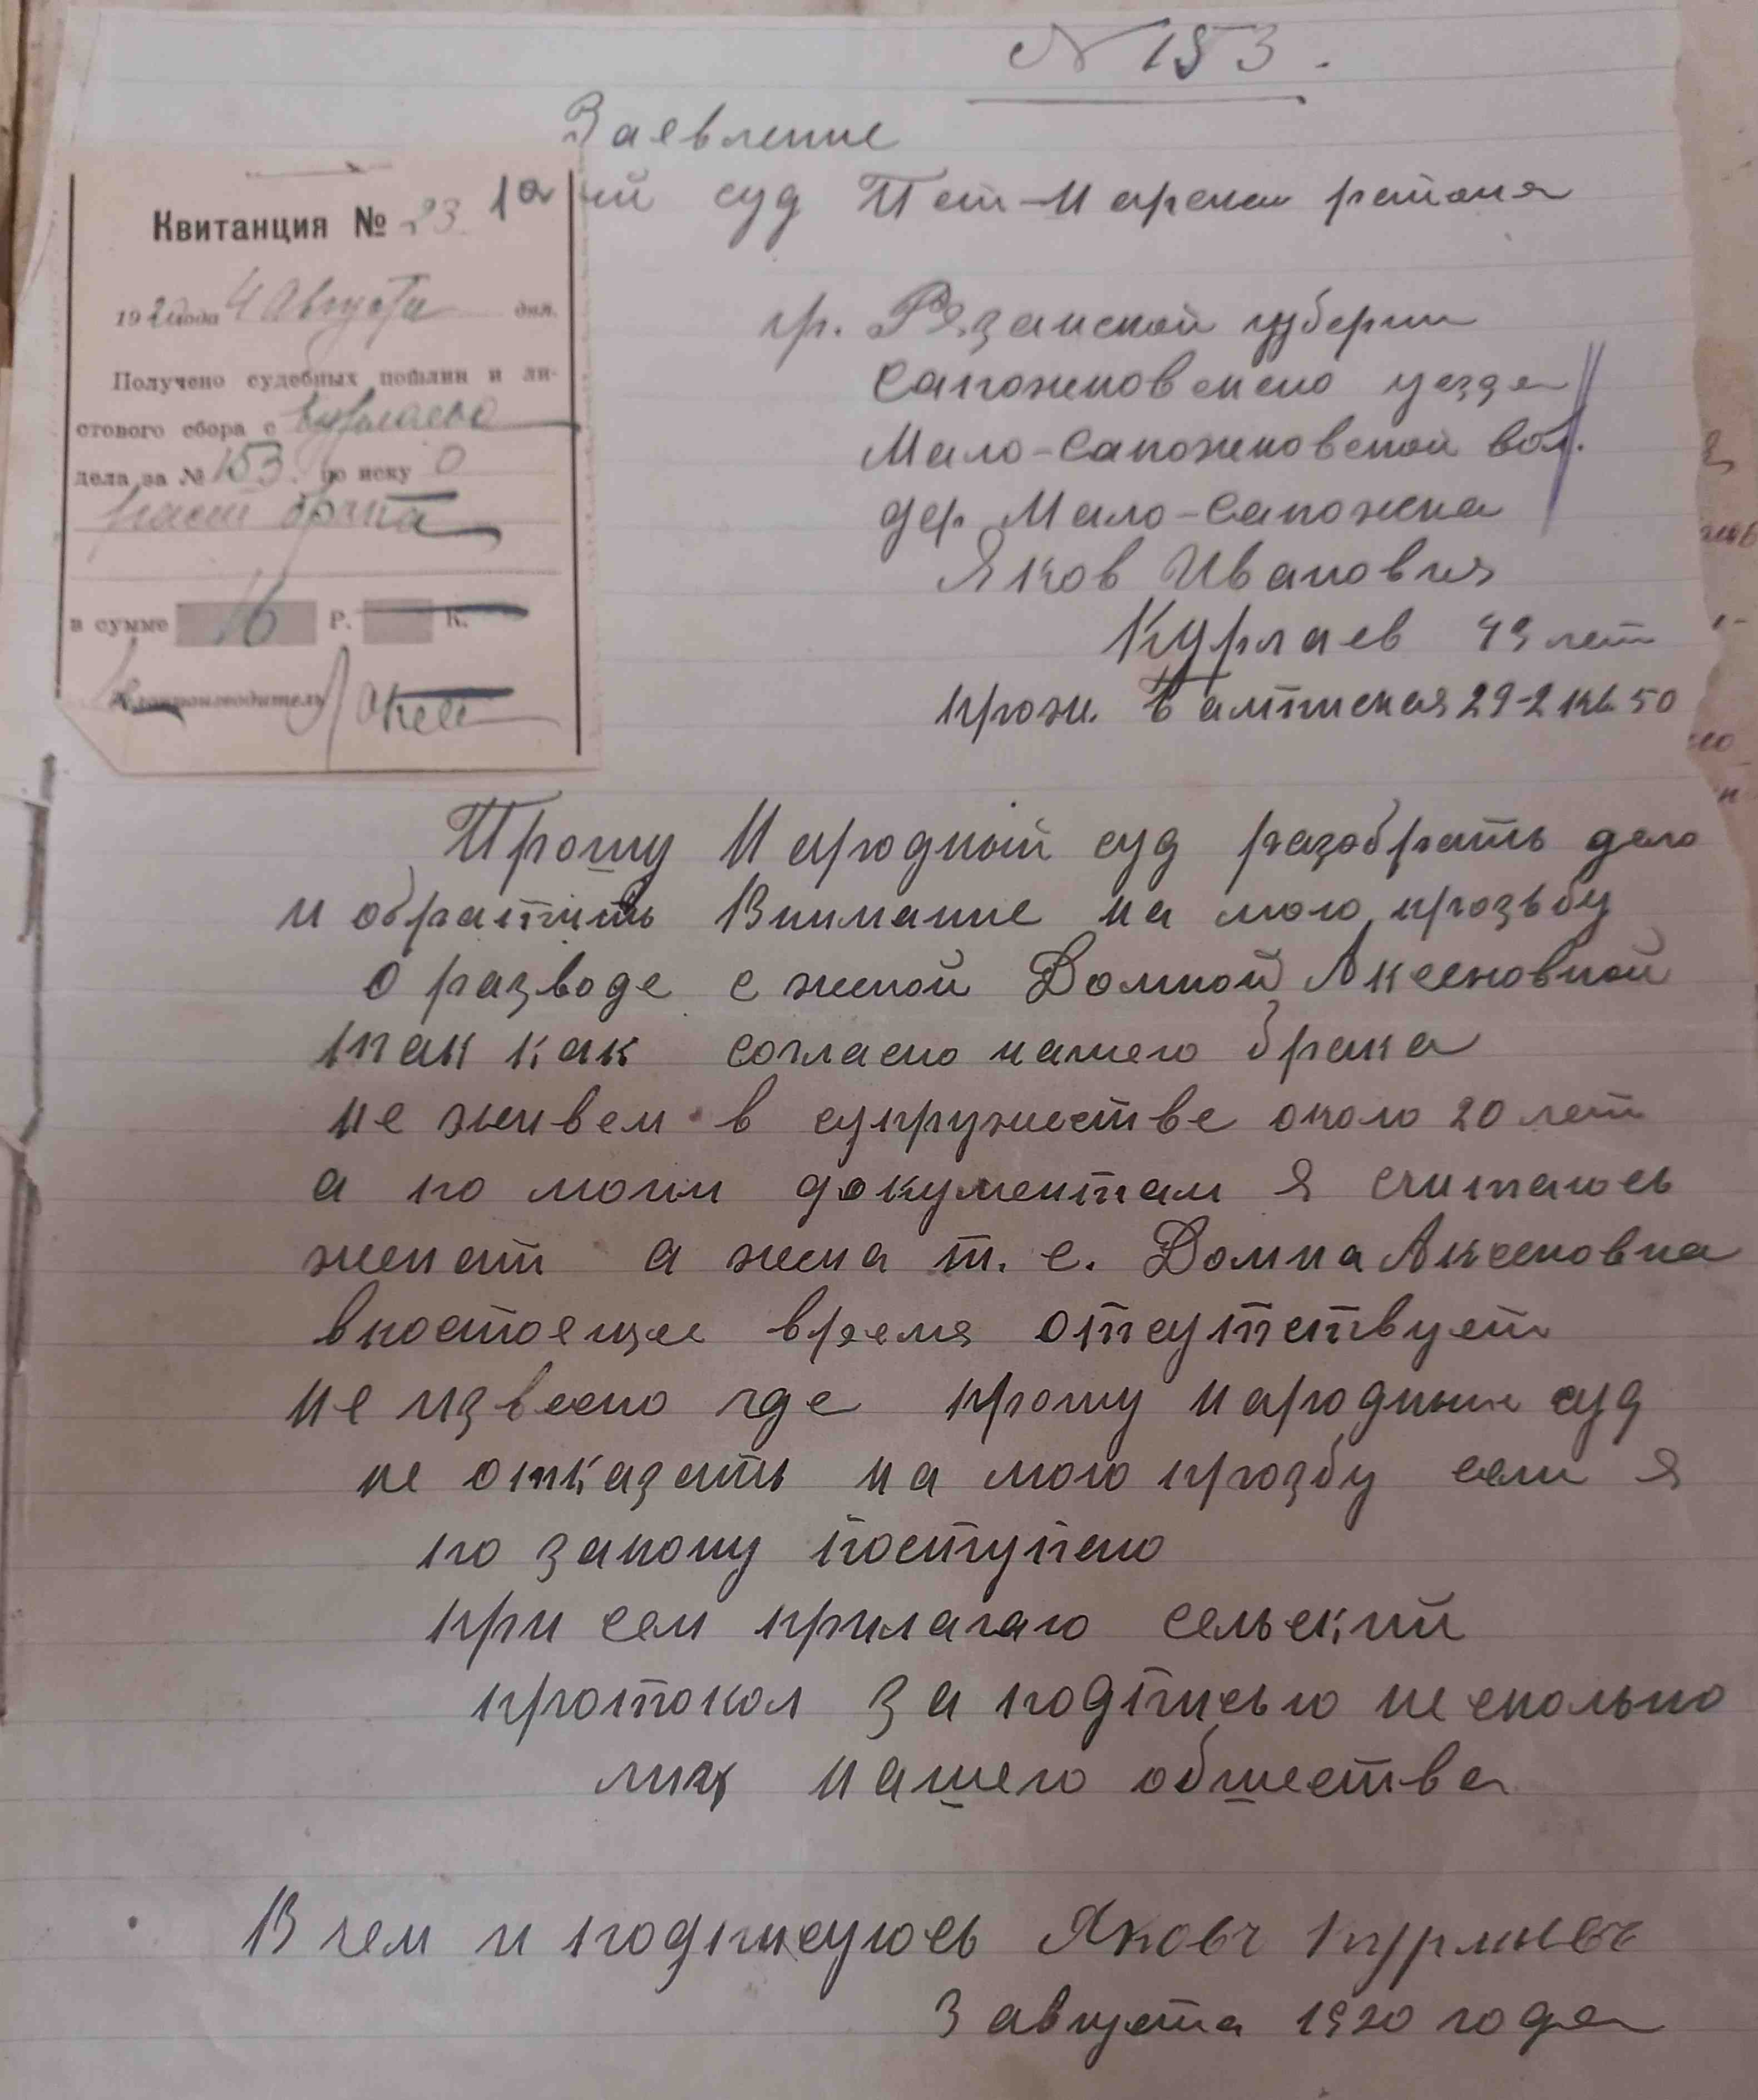 N 153.
Заявление
ый суд Пет-Нарскаи раиона
Квитанция № 23
1920 года 4 Августа дня.
Получено судебных пошлин и ли-
стового сбора с Курлаева
дела за № 153. по иску о
раст брака
в сумме 16 Р. К.
Делопроизводитель
гр. Рязанской губерни
Сапожковскено уезда
Мало-Сапожковской вол.
дер. Мало-Сапожка
Яков Иванович
Курлаев 49 лет
прож. Балтиская 29-2 кв. 50
Прошу Народный суд разобрать дело
и обратить внимание на мою прозьбу
о разводе с женой Домной Аксеновной
так как согласно нашего брака
не живем в супружестве около 20 лет
а по моим документам я считаюсь
женат а жена т. е. Домна Аксеновна
вностоещее время отсутствует
не извесно где прошу народный суд
не отказать на мою прозбу если я
по закону поступлю
при сем прилагаю сельский
протокол за подписью несколько
лиц нашего общества
В чем и подписуюсь Яковъ Курлаевъ
3 августа 1920 года